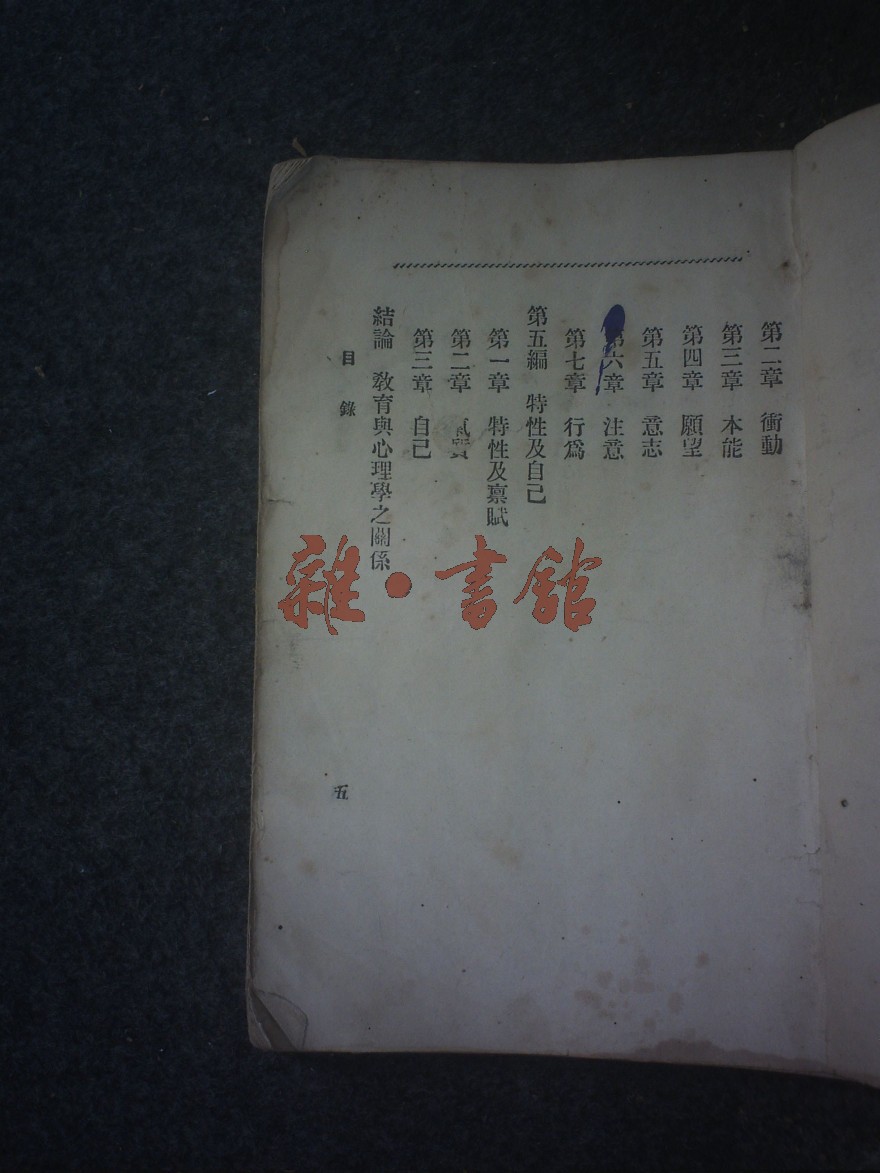 第二章 衝動
第三章 本能
第四章 願望
第五章 意志
第六章 注意
第七章 行爲
第五編 特性及自己
第一章 特性及禀賦
第二章 氣質
第三章 自己
結論 教育與心理學之關係
目錄
五
雜·書館